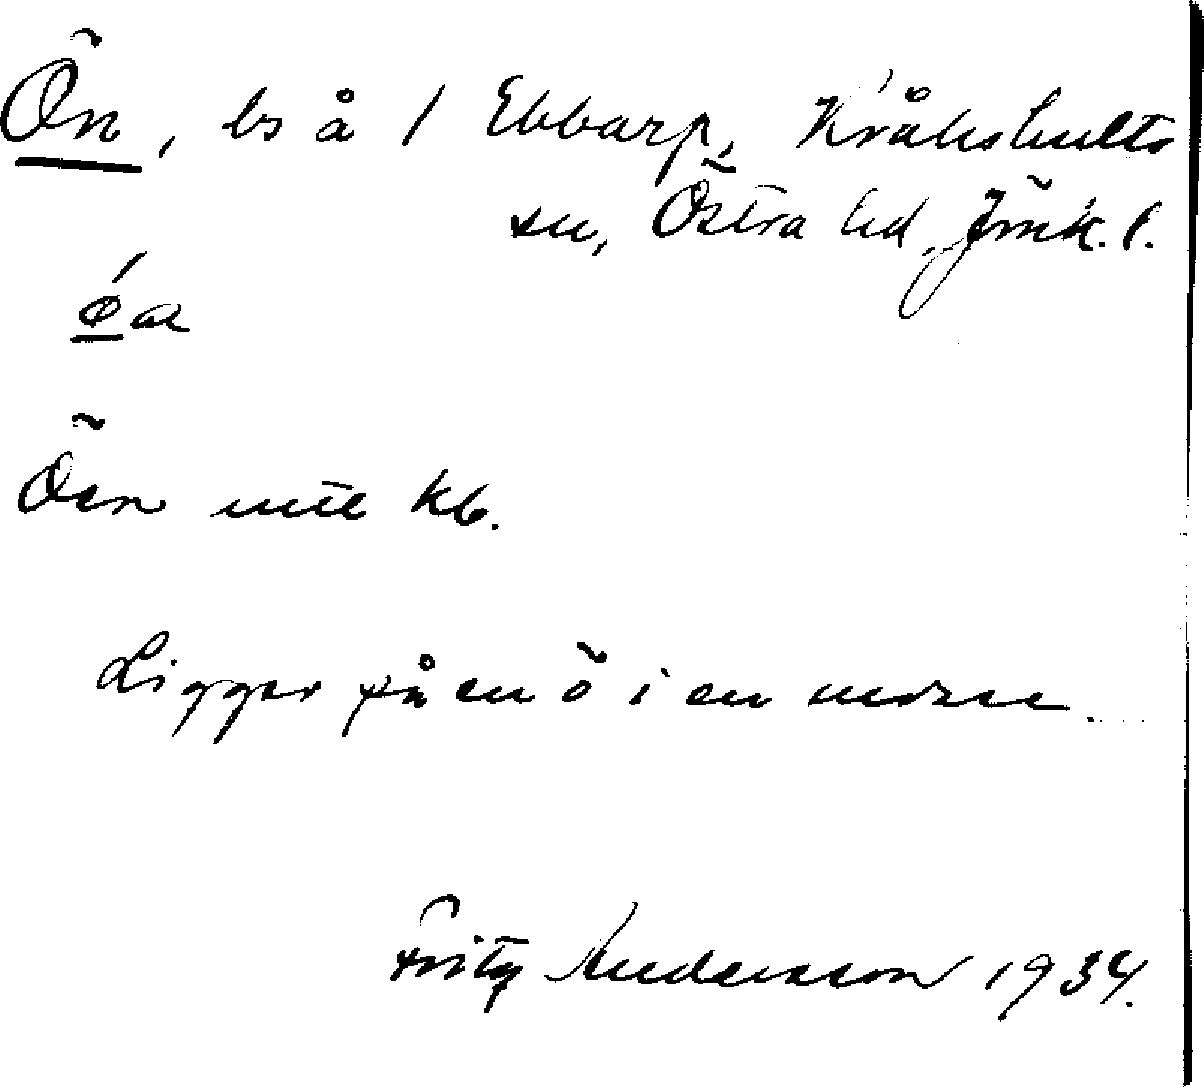 Ön, bs å 1 Ebbarp, Kråkshults
sn, Östra hd, Jönk. l.
ǿa
Öen utt kb.
Ligger på en ö i en mosse.
Fritz Andersson 1934.